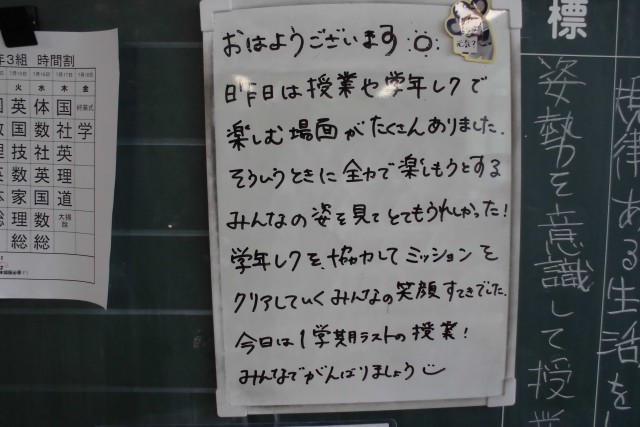 おはようございます
昨日は授業や学年レクで
楽しむ場面がたくさんありました.
そういうときに全力で楽しもうとする
みんなの姿を見てとてもうれしかった!
学年レクを、協力してミッションを
クリアしていくみんなの笑顔すてきでした.
今日は1学期ラストの授業!
みんなでがんばりましょう
元気?
年3組 時間割
火 水 木 金
英 体 国
国 数 社 学
技 社 英
数 英 理
家 国 道
理 数 大掃除
総 総
標
姿勢を意識して授業
規律ある生活を